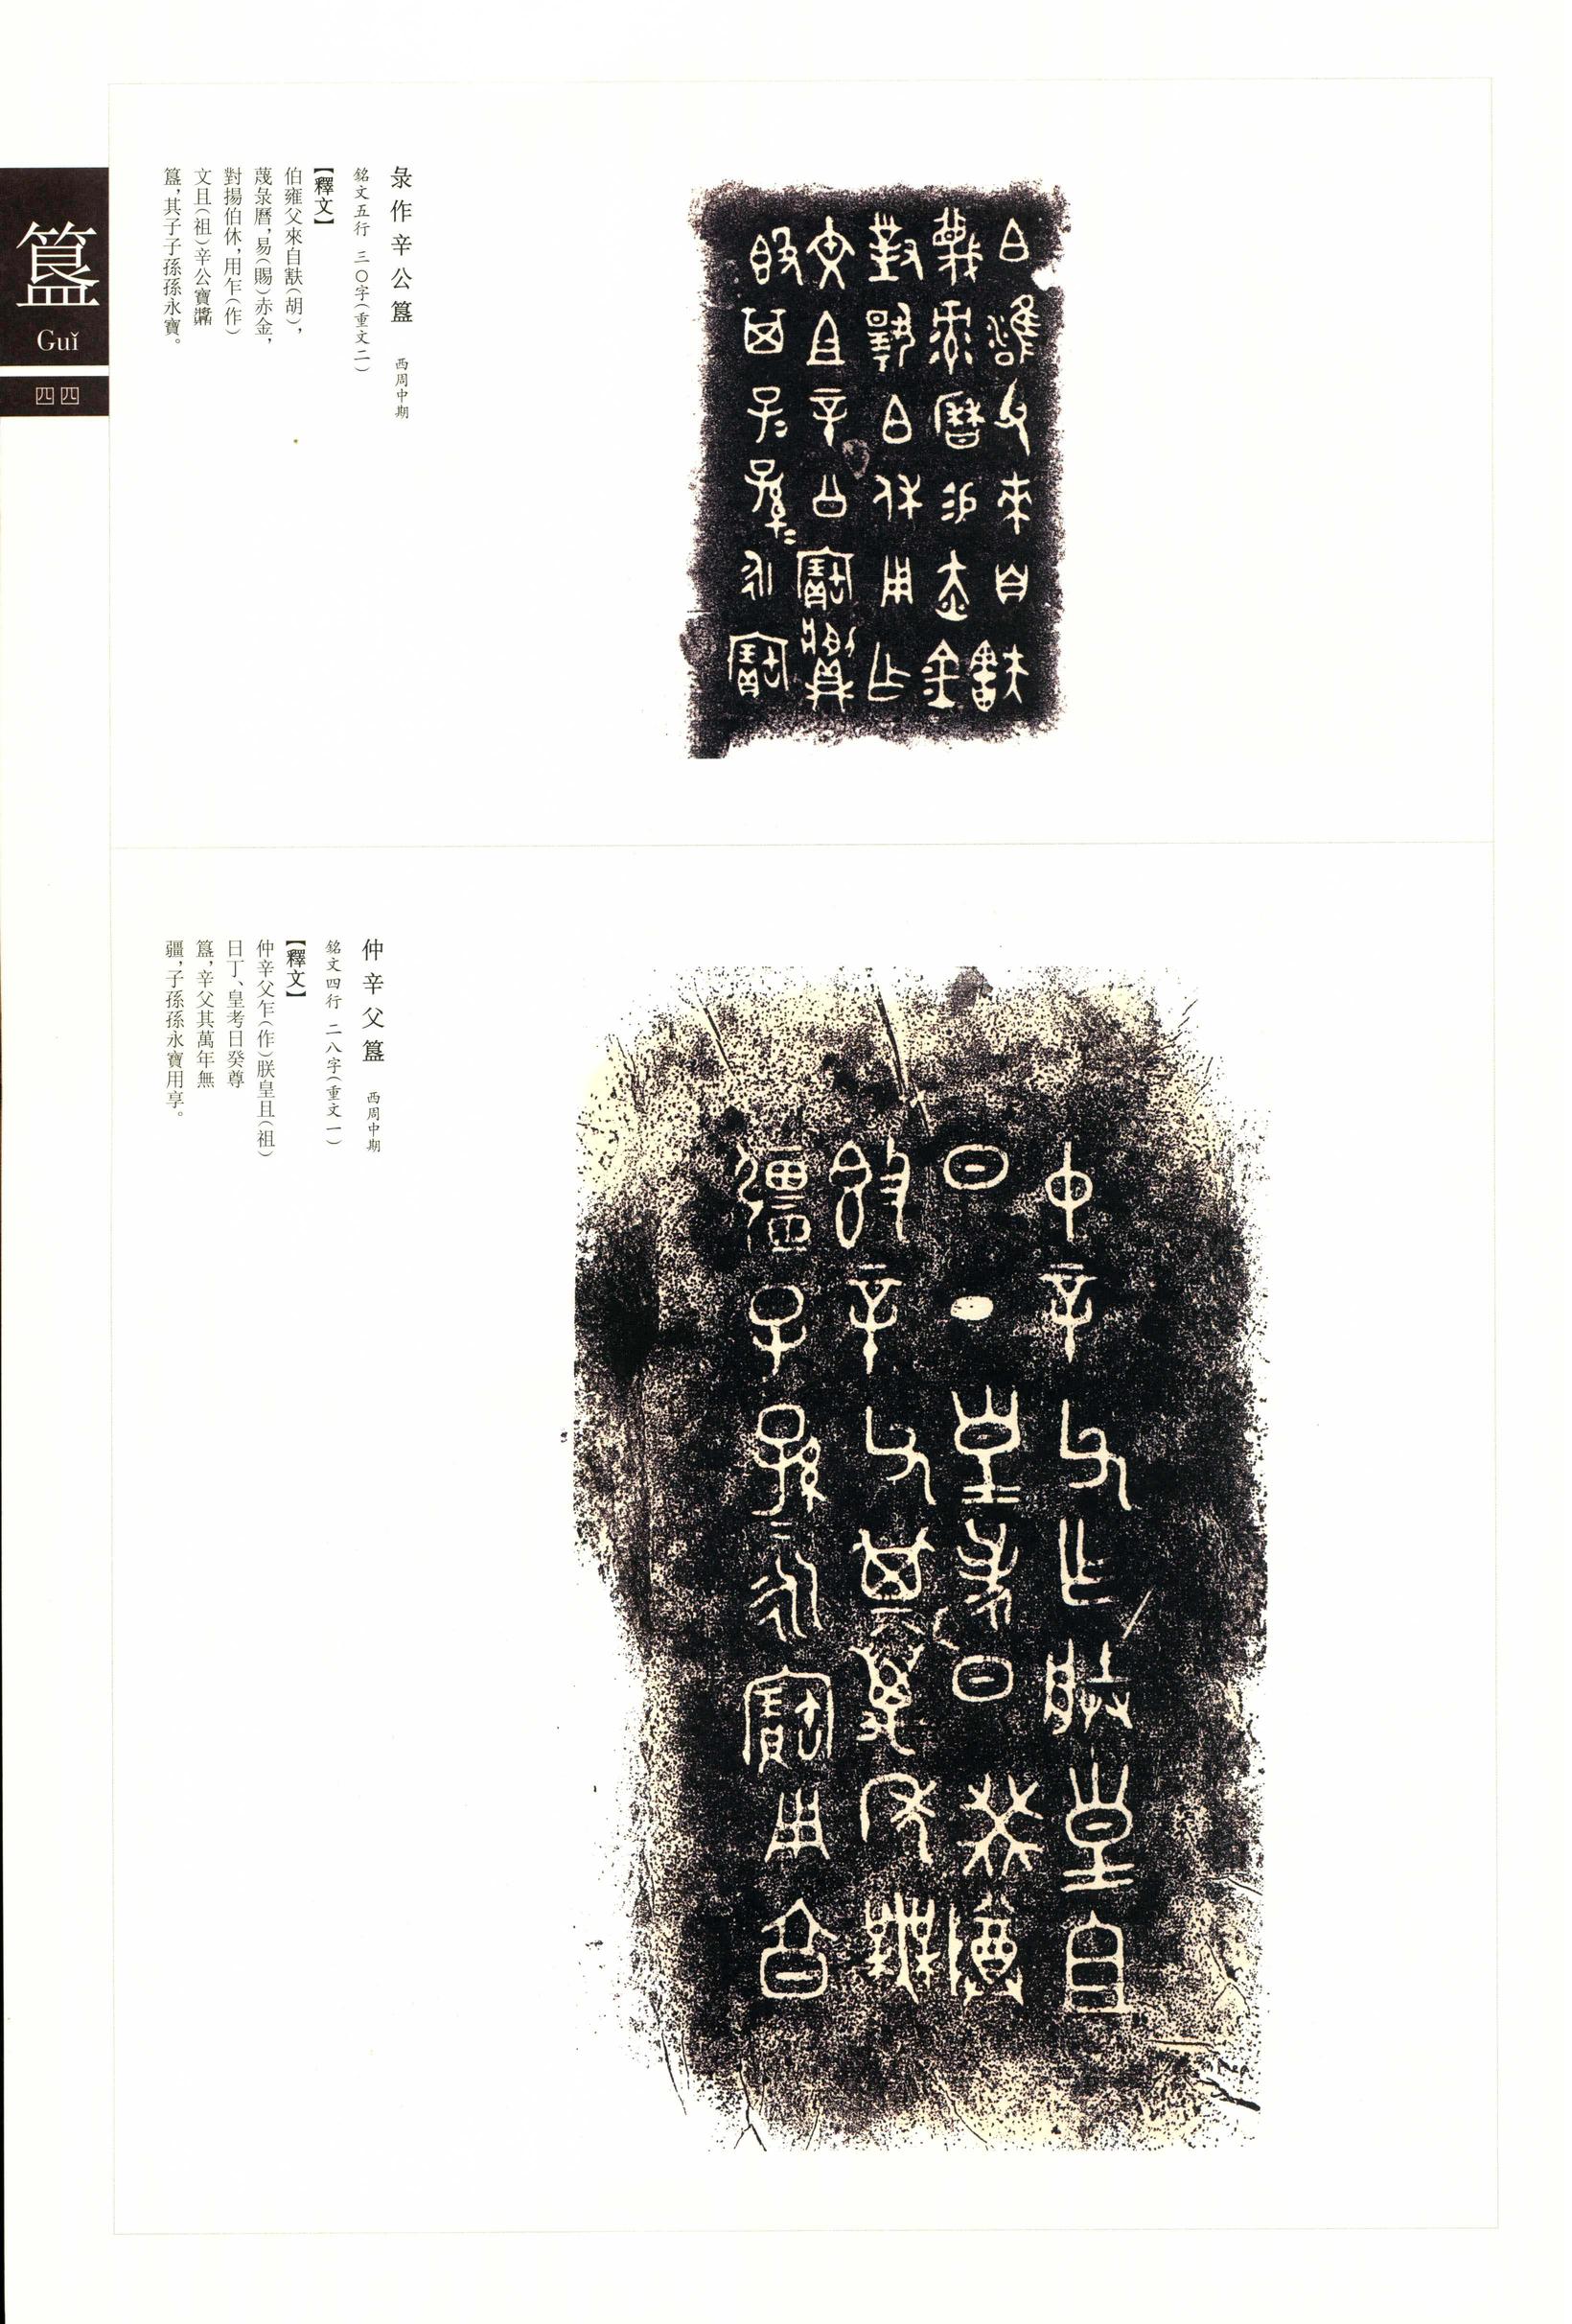 簋
Guǐ
四四
彔作辛公簋 西周中期
銘文五行 三〇字（重文二）
【釋文】
伯雍父來自㝬（胡），
蔑彔曆，易（賜）赤金，
對揚伯休，用乍（作）
文且（祖）辛公寶𩰫
簋，其子子孫孫永寶。
仲辛父簋 西周中期
銘文四行 二八字（重文一）
【釋文】
仲辛父乍（作）朕皇且（祖）
日丁、皇考日癸尊
簋，辛父其萬年無
疆，子孫孫永寶用享。